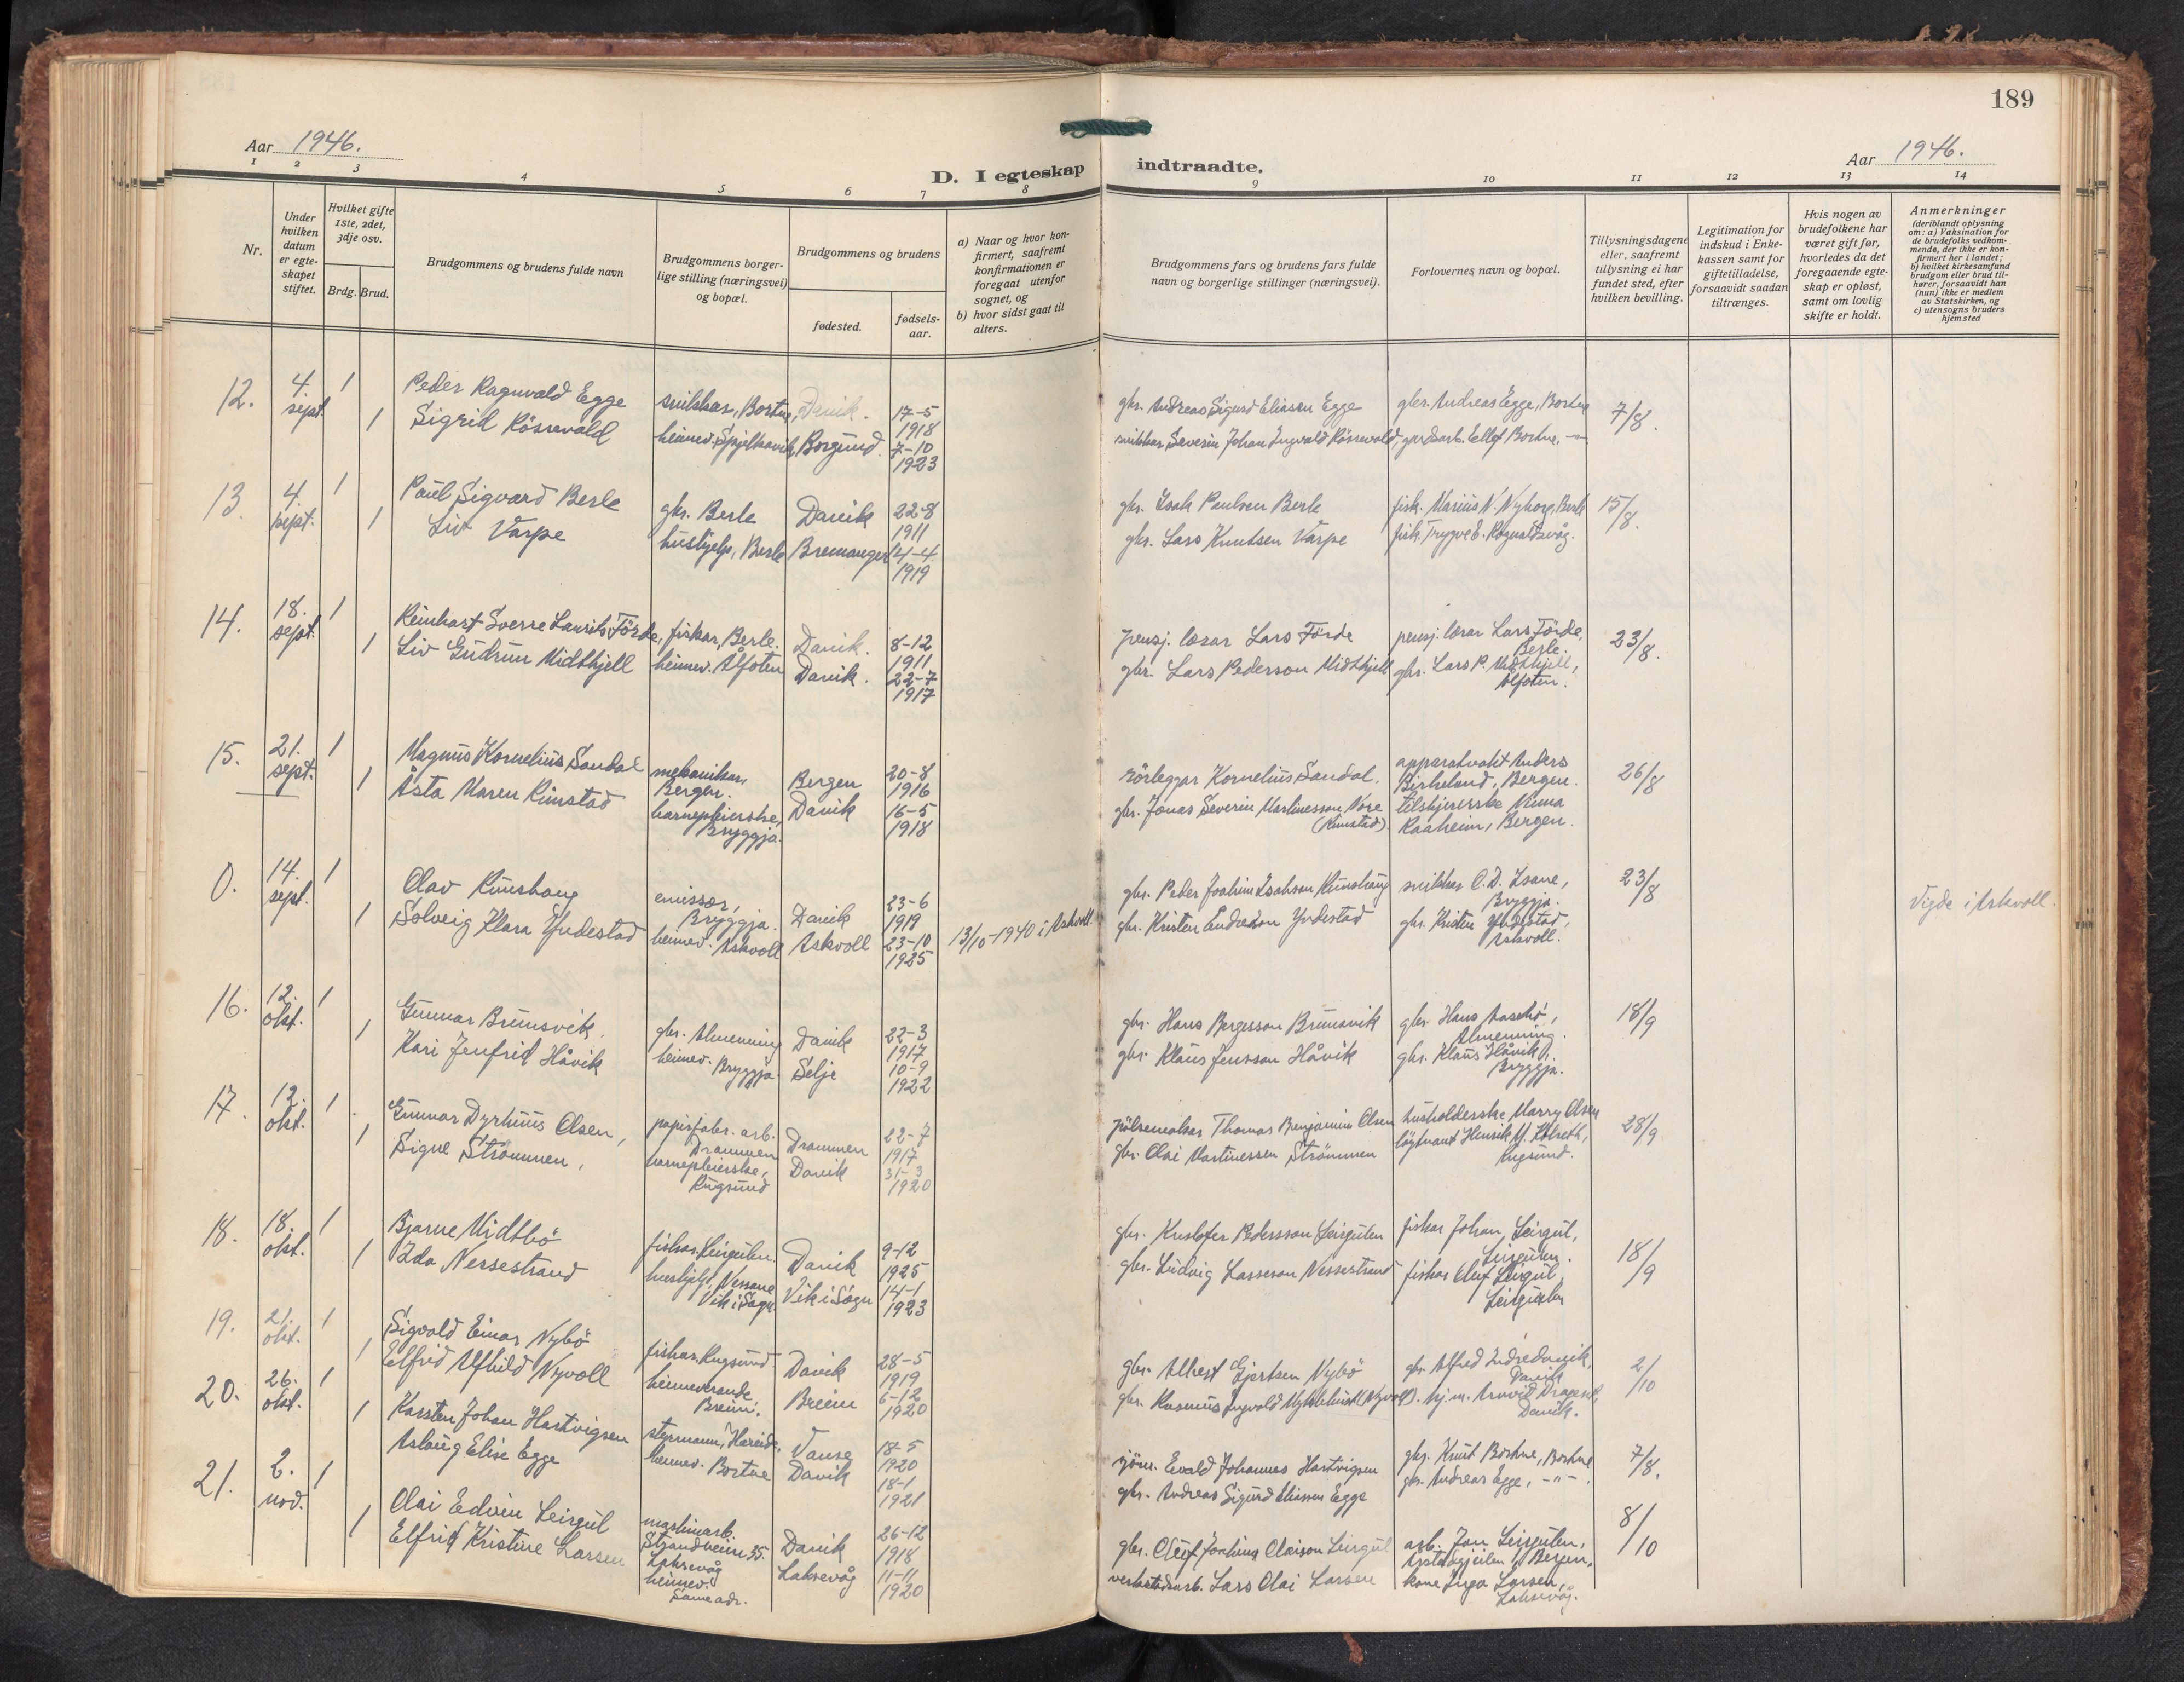 189
Aar 1946.
D. I egteskap indtraadte.
Aar 1946.
1 2 3 4 5 6 7 8 9 10 11 12 13 14
Nr.
Under hvilken datum er egte-skapet stiftet.
Hvilket gifte 1ste, 2det, 3dje osv.
Brdg. Brud.
Brudgommens og brudens fulde navn
Brudgommens borger-lige stilling (næringsvei) og bopæl.
Brudgommens og brudens
fødested.
fødsels-aar.
a) Naar og hvor kon-firmert, saafremt konfirmationen er foregaat utenfor sognet, og
b) hvor sidst gaat til alters.
Brudgommens fars og brudens fars fulde navn og borgerlige stillinger (næringsvei).
Forlovernes navn og bopæl.
Tillysningsdagene eller, saafremt tillysning ei har fundet sted, efter hvilken bevilling.
Legitimation for indskud i Enke-kassen samt for giftetilladelse, forsaavidt saadan tiltrænges.
Hvis nogen av brudefolkene har været gift før, hvorledes da det foregaaende egte-skap er opløst, samt om lovlig skifte er holdt.
Anmerkninger
(deriblandt oplysning om: a) Vaksination for de brudefolks vedkom-mende, der ikke er kon-firmert her i landet; b) hvilket kirkesamfund brudgom eller brud til-hører, forsaavidt han (hun) ikke er medlem av Statskirken, og c) utensogns bruders hjemsted
12. 4. sept. 1 Peder Ragnvald Egge snikkar, Bortne, Davik. 17-5 1918 gbr. Andreas Sigurd Eliasen Egge gbr. Andreas Egge, Bortne 7/8.
1 Sigrid Rösnevald heimev. Spjelkavik, Borgund. 7-10 1923 snikkar Severin Johan Ingvald Rösnevald, gardsarb. Ellef Bortne, -"-
13. 4. sept. 1 Paul Sigvard Berle gbr. Berle Davik 22-8 1911 gbr. Isak Paulsen Berle fisk. Marius N. Nyborg, Berle 15/8.
1 Liv Varpe hushjelp, Berle Bremanger 14-4 1919 gbr. Lars Knutsen Varpe fisk. Trygve E. Rognaldsvåg.
14. 18. sept. 1 Reinhart Sverre Laurits Förde, fiskar, Berle. Davik. 8-12 1911 pensj. lærar Lars Förde pensj. lærar Lars Förde, Berle. 23/8.
1 Liv Gudrun Midthjell heimev. Ålfoten Davik. 22-7 1917 gbr. Lars Pederson Midthjell gbr. Lars P. Midthjell, Ålfoten.
15. 21. sept. 1 Magnus Kornelius Sandal mekanikar, Bergen. Bergen 20-8 1916 rörleggar Kornelius Sandal. apparatvakt Anders Birkeland, Bergen. 26/8
1 Åsta Maren Rimstad barnepleierske, Bryggja. Davik 16-5 1918 gbr. Jonas Severin Martinesson Nore (Rimstad). tilskjererske Ninna Raaheim, Bergen.
0. 14. sept. 1 Olav Runshaug emissær, Bryggja. Davik 23-6 1919 gbr. Peder Joakim Isakson Runshaug snikkar C. D. Isane, Bryggja. 23/8 Vigde i Askvoll.
1 Solveig Klara Yndestad heimev. Askvoll Askvoll 23-10 1925 13/10-1940 i Askvoll. gbr. Kristen Endreson Yndestad gbr. Kristen Yndestad, Askvoll.
16. 12. okt. 1 Gunnar Brunsvik, gbr. Almenning Davik 22-3 1917 gbr. Hans Bergesson Brunsvik gbr. Hans Aasebö, Almenning. 18/9
1 Kari Jenfrid Håvik heimev. Bryggja Selje 10-9 1922 gbr. Klaus Jensson Håvik gbr. Klaus Håvik, Bryggja.
17. 12. okt. 1 Gunnar Dyrhuus Olsen, papirfabr. arb. Drammen Drammen 22-7 1917 pölsemakar Thomas Benjamin Olsen husholderske Marry Olsen 28/9
1 Signe Strömmen, barnepleierske, Rugsund Davik 31-3 1920 gbr. Olai Martinessen Strömmen löytnant Henrik M. Kolseth, Rugsund.
18. 18. okt. 1 Bjarne Midtbö fiskar, Leirgulen. Davik 9-12 1925 gbr. Kristofer Pedersson Leirgulen fiskar Johan Leirgul, Leirgulen. 18/9
1 Ida Nessestrand hushjelp, Nessane Vik i Sogn Vik i Sogn 14-1 1923 gbr. Ludvig Lasseson Nessestrand fiskar Oluf Leirgul, Leirgulen
19. 21. okt. 1 Sigvald Einar Nybö fiskar, Rugsund. Davik 28-5 1919 gbr. Albert Gjertsen Nybö gbr. Alfred Indredavik, Davik 2/10
1 Elfrid Alfhild Nyvoll heimeverande, Breim. Breim 6-12 1920 gbr. Rasmus Ingvald Myklebust (Nyvoll). hj.m. Arnvid Drageset, Davik.
20. 26. okt. 1 Karsten Johan Hartvigsen styrmann, Hareid. Vanse 18-5 1920 sjöm. Evald Johannes Hartvigsen gbr. Knut Bortne, Bortne 7/8.
1 Aslaug Elise Egge heimev. Bortne Davik 18-1 1921 gbr. Andreas Sigurd Eliassen Egge gbr. Andreas Egge, -"-
21. 2. nov. 1 Olai Edvin Leirgul maskinarb. Strandveien 35. Laksevåg Davik 26-12 1918 gbr. Oluf Joakim Olaison Leirgul arb. Jan Leirgulen, Bergen. 8/10
1 Elfrid Kristine Larsen heimev. Same adr. Laksevåg 11-11 1920 verkstedsarb. Lars Olai Larsen kone Inga Larsen, Laksevåg.